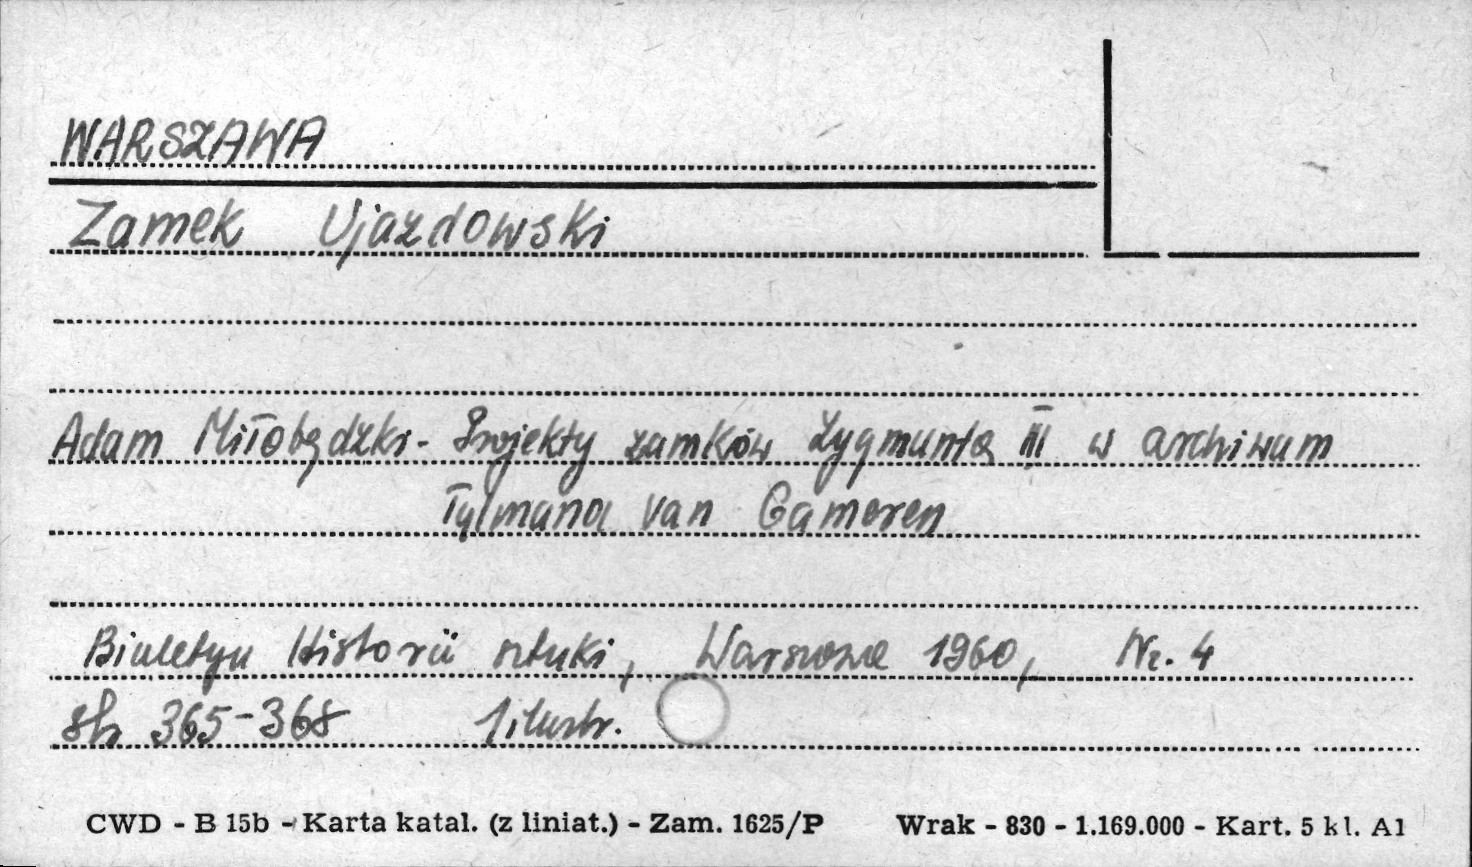 WARSZAWA
Zamek Ujazdowski
Adam Miłobędzki - Projekty zamków Zygmunta III w archiwum
Tylmana van Gameren
Biuletyn Historii sztuki, Warszawa 1960, Nr. 4
str 365-368 1 ilustr.
CWD - B 15b - Karta katal. (z liniat.) - Zam. 1625/P Wrak - 830 - 1.169.000 - Kart. 5 kl. A1